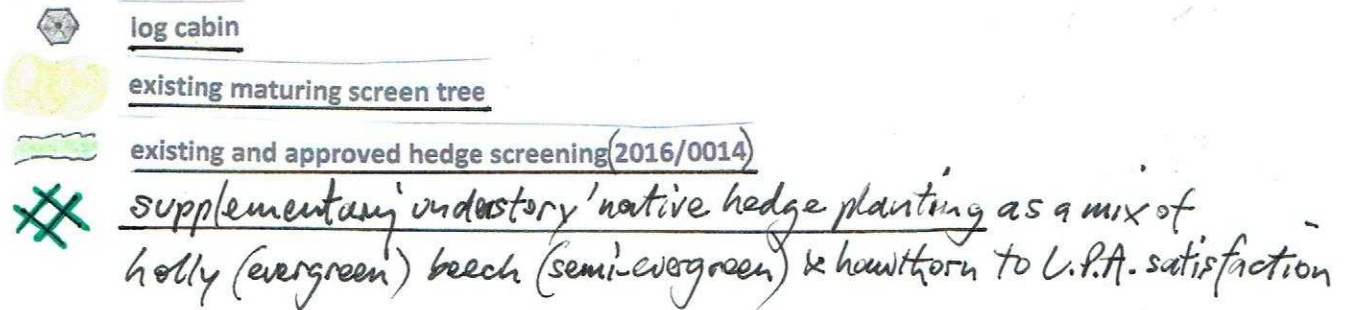 log cabin
existing maturing screen tree
existing and approved hedge screening(2016/0014)
supplementary 'understory' native hedge planting as a mix of
holly (evergreen) beech (semi-evergreen) & hawthorn to L.P.A. satisfaction